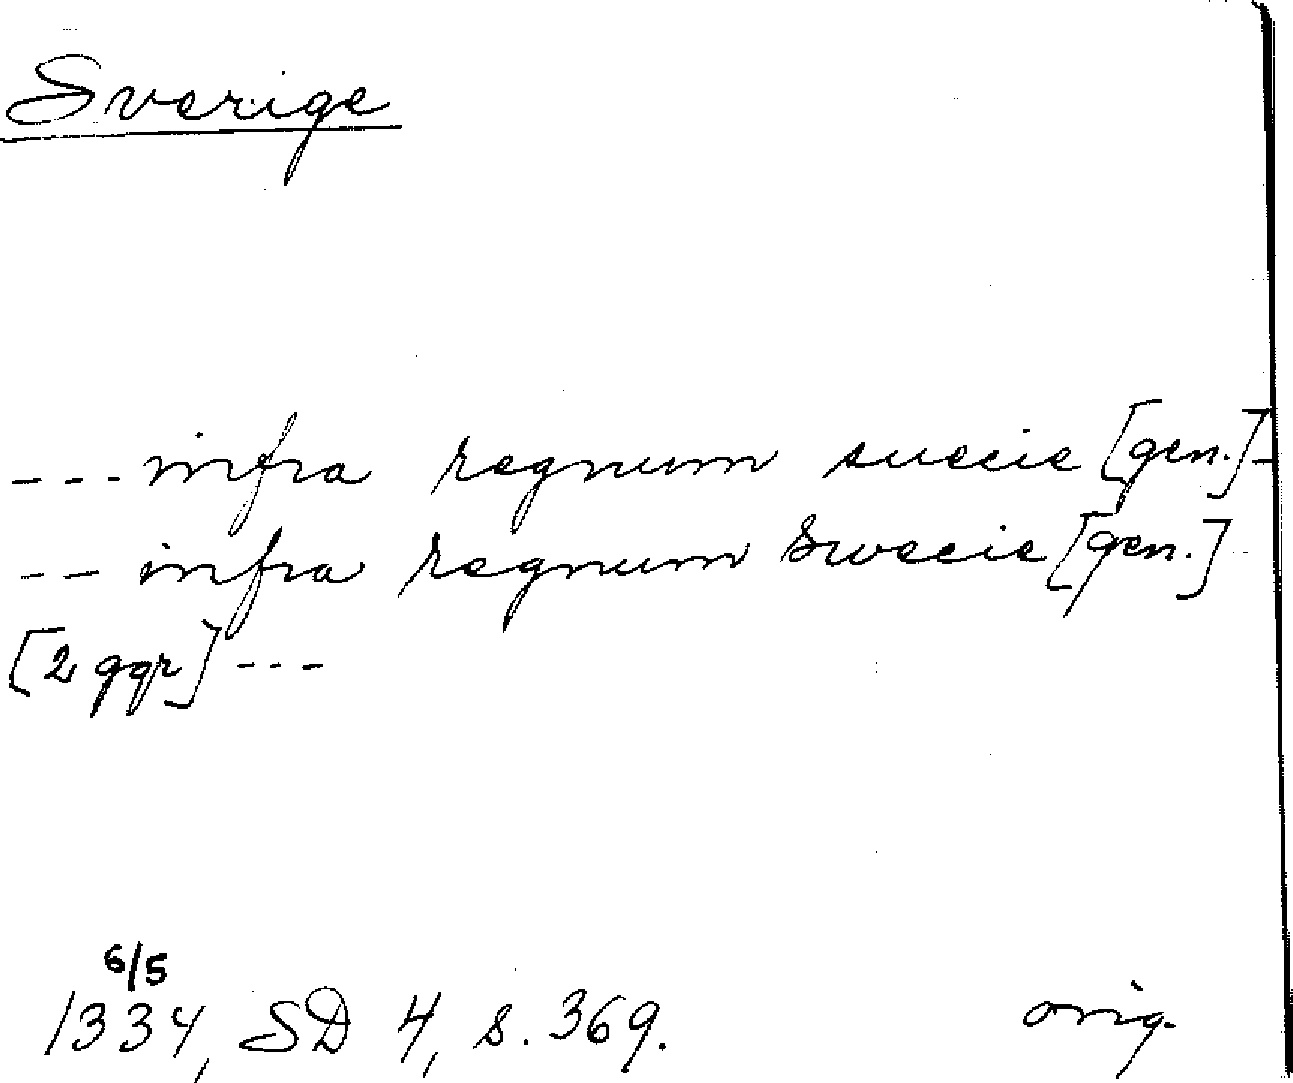 Sverige
--- infra regnum suecie [gen.] -
-- infra regnum Swecie [gen.]
[2 ggr] ---
6/5
1334, SD 4, s. 369. orig.